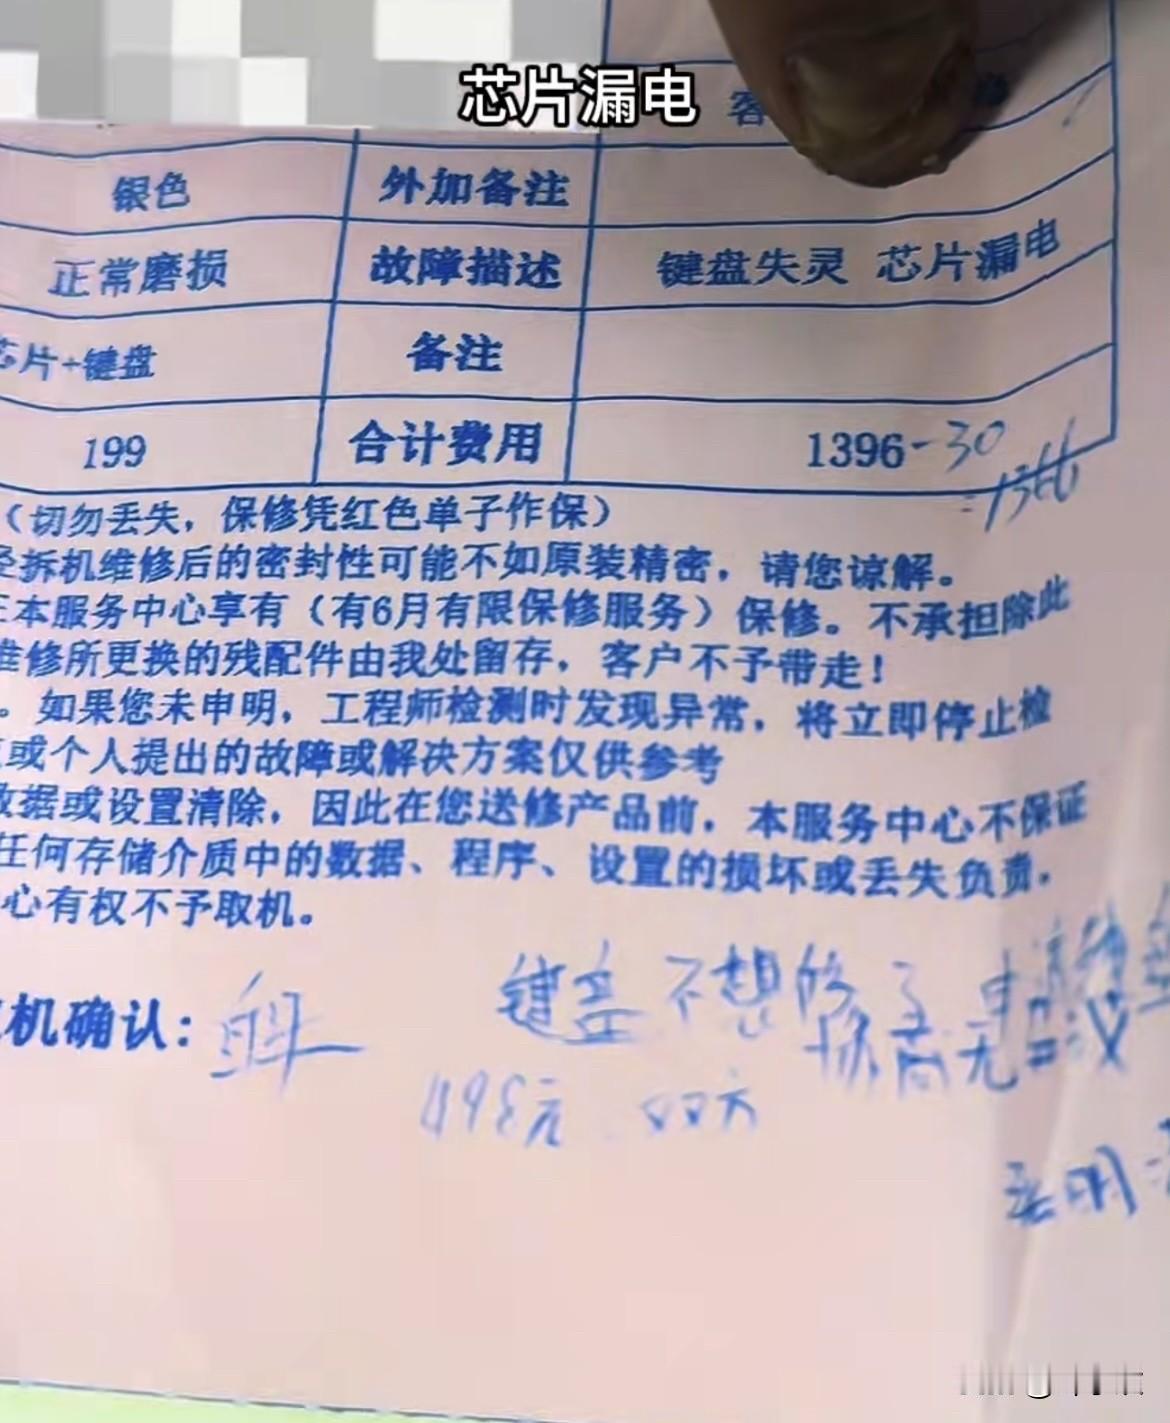 芯片漏电
客
银色 外加备注
正常磨损 故障描述 键盘失灵 芯片漏电
芯片+键盘 备注
199 合计费用 1396-30
=1366
（切勿丢失，保修凭红色单子作保）
拆机维修后的密封性可能不如原装精密，请您谅解。
本服务中心享有（有6月有限保修服务）保修。不承担除此
维修所更换的残配件由我处留存，客户不予带走！
。如果您未申明，工程师检测时发现异常，将立即停止检
或个人提出的故障或解决方案仅供参考
数据或设置清除，因此在您送修产品前，本服务中心不保证
任何存储介质中的数据、程序、设置的损坏或丢失负责.
心有权不予取机。
机确认：
键盘不想修了
498元 双方
协商无异议